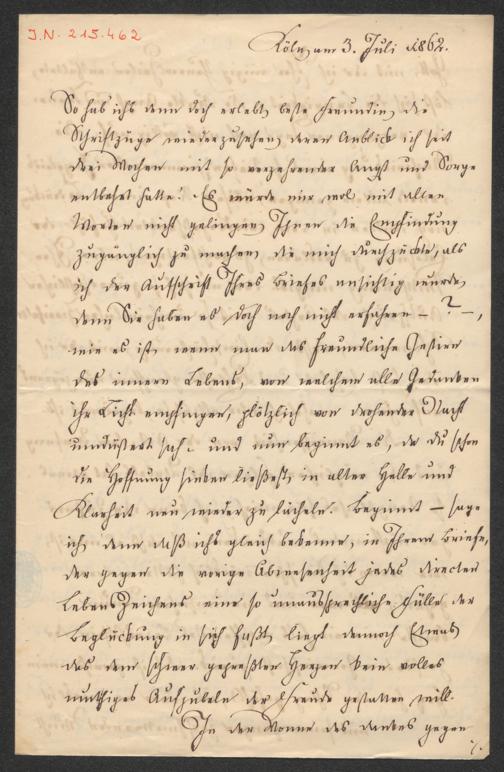 J.N. 215.462
Köln, am 3. Juli 1862.
So hab ichs denn doch erlebt, beste Freundin, die
Schriftzüge wiederzusehen, deren Anblick ich seit
drei Wochen mit so verzehrender Angst und Sorge
entbehrt hatte! Es würde mir wol mit allen
Worten nicht gelingen, Ihnen die Empfindung
zugänglich zu machen, die mich durchzuckte, als
ich der Aufschrift Ihres Briefes ansichtig wurde,
denn Sie haben es doch noch nicht erfahren – ? –,
wie es ist, wenn man das freundliche Gestirn
des innern Lebens, von welchem alle Gedanken
ihr Licht empfingen, plötzlich von drohender Nacht
umdüstert sah. und nun beginnt es, da du schon
die Hoffnung sinken ließest, in alter Helle und
Klarheit neu wieder zu lächeln. Beginnt – sage
ich, denn daß ichs gleich bekenne, in Ihrem Briefe,
der gegen die vorige Abwesenheit jedes directen
LebensZeichens eine so unaussprechliche Fülle der
Beglückung in sich faßt, liegt dennoch Etwas
das dem schwer gepreßten Herzen kein volles
muthiges Aufjubeln der Freude gestatten will.
In der Wonne des Dankes gegen